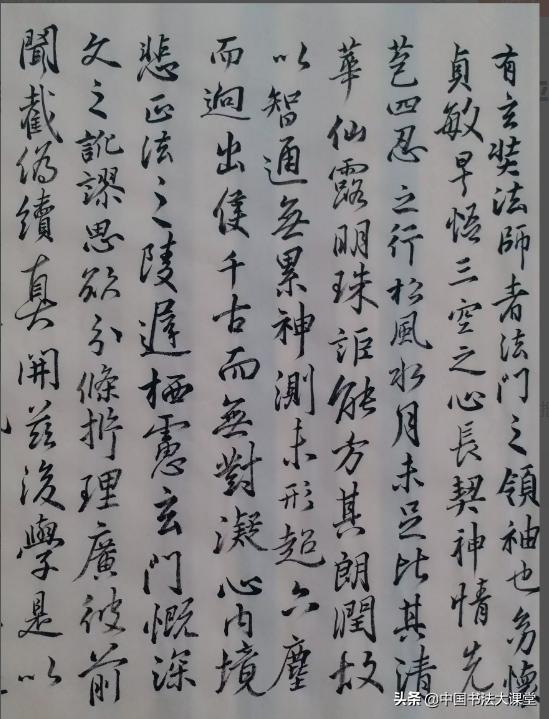 有玄奘法師者法門之領袖也幼懷
貞敏早悟三空之心長契神情先
苞四忍之行松風水月未足比其清
華仙露明珠詎能方其朗潤故
以智通無累神測未形超六塵
而迥出隻千古而無對凝心內境
悲正法之陵遲栖慮玄門慨深
文之訛謬思欲分條析理廣彼前
聞截偽續真開茲後學是以
头条 @中国书法大课堂